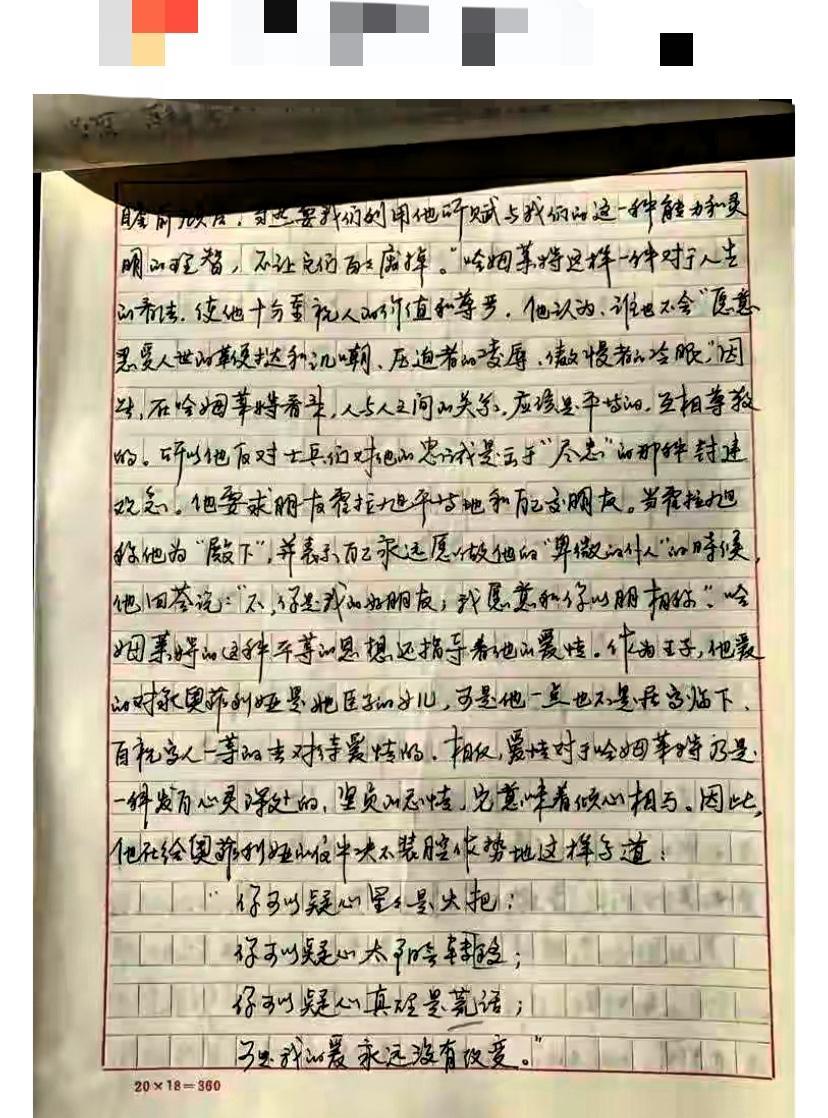 瞻前顾后,当然要我们利用他所赋与我们的这一种能力和灵
明的理智,不让它们白白废掉。"哈姆莱特这样一种对于人生
的看法,使他十分重视人的价值和尊严。他认为,谁也不会"愿意
忍受人世的鞭挞和讥嘲、压迫者的凌辱、傲慢者的冷眼",因
此,在哈姆莱特看来,人与人之间的关系,应该是平等的,互相尊敬
的。所以他反对士兵们对他的忠诚是出于"尽忠"的那种封建
观念。他要求朋友霍拉旭平等地和自己交朋友。当霍拉旭
称他为"殿下",并表示自己永远愿以做他的"卑微的仆人"的时候,
他回答说:"不,你是我的好朋友;我愿意和你以朋相称"。哈
姆莱特的这种平等的思想还指导着他的爱情。作为王子,他爱
的对象奥菲利娅是她臣子的女儿,可是他一点也不是居高临下、
自视高人一等的去对待爱情的。相反,爱情对于哈姆莱特乃是
一种发自心灵深处的,坚贞的感情,它意味着倾心相与。因此,
他在给奥菲利娅的信中决不装腔作势地这样写道:
"你可以疑心星星是火把;
你可以疑心太阳会转移;
你可以疑心真理是荒话;
可是我的爱永远没有改变。"
20×18=360